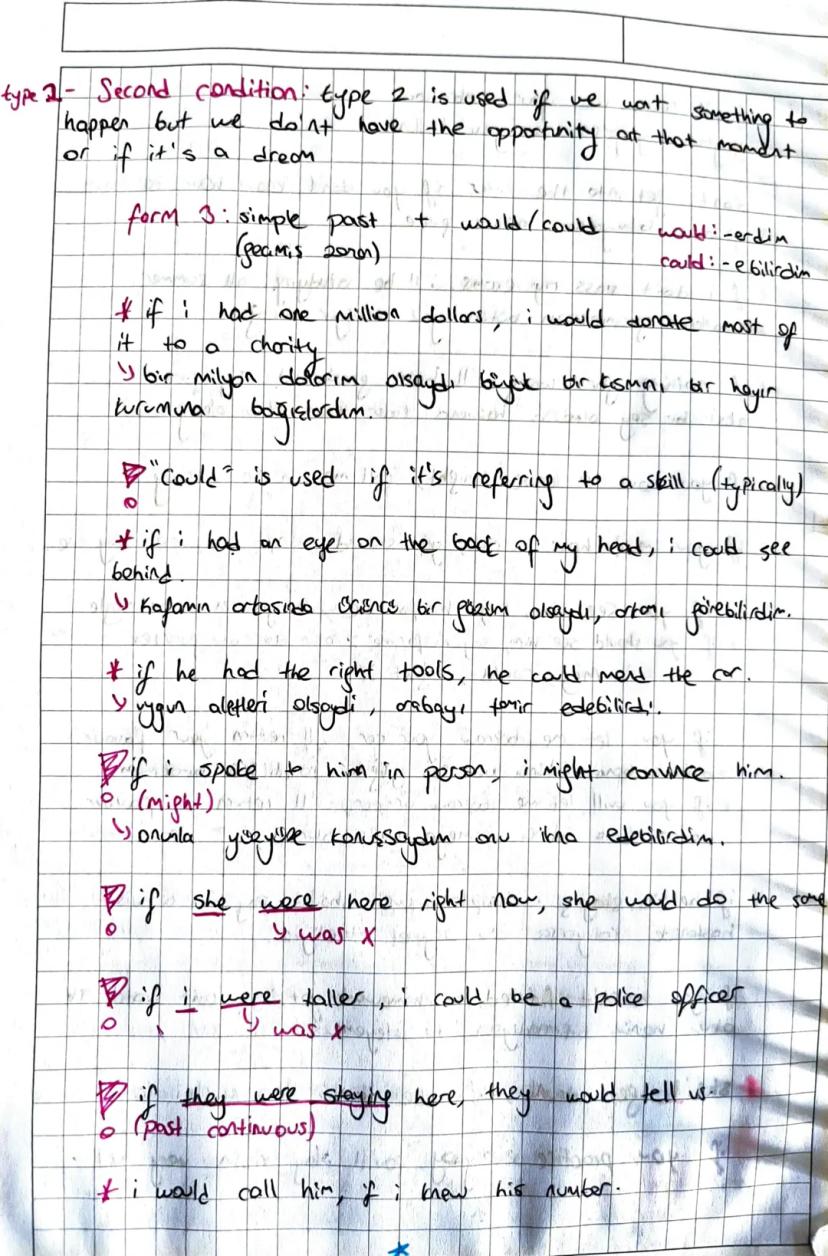 type 2 - Second condition: type 2 is used if we want something to
happen but we do'nt have the opportunity at that moment
or if it's a dream
form 3: simple past + would/could
(geçmiş zaman)
would: -erdim
could: -ebilirdim
* if i had one million dollars, i would donate most of
it to a charity
↳ bir milyon dolarım olsaydı büyük bir kısmını bir hayır
kurumuna bağışlardım.
! "Could" is used if it's referring to a skill. (typically)
* if i had an eye on the back of my head, i could see
behind.
↳ Kafamın arkasında bir gözüm olsaydı, arkamı görebilirdim.
* if he had the right tools, he could mend the car.
↳ uygun aletleri olsaydı, arabayı tamir edebilirdi.
! if i spoke to him in person, i might convince him.
(might)
↳ onunla yüzyüze konuşsaydım onu ikna edebilirdim.
! if she were here right now, she would do the same
↳ was x
! if i were taller, i could be a police officer
↳ was x
! if they were staying here, they would tell us.
(past continuous)
* i would call him, if i knew his number.